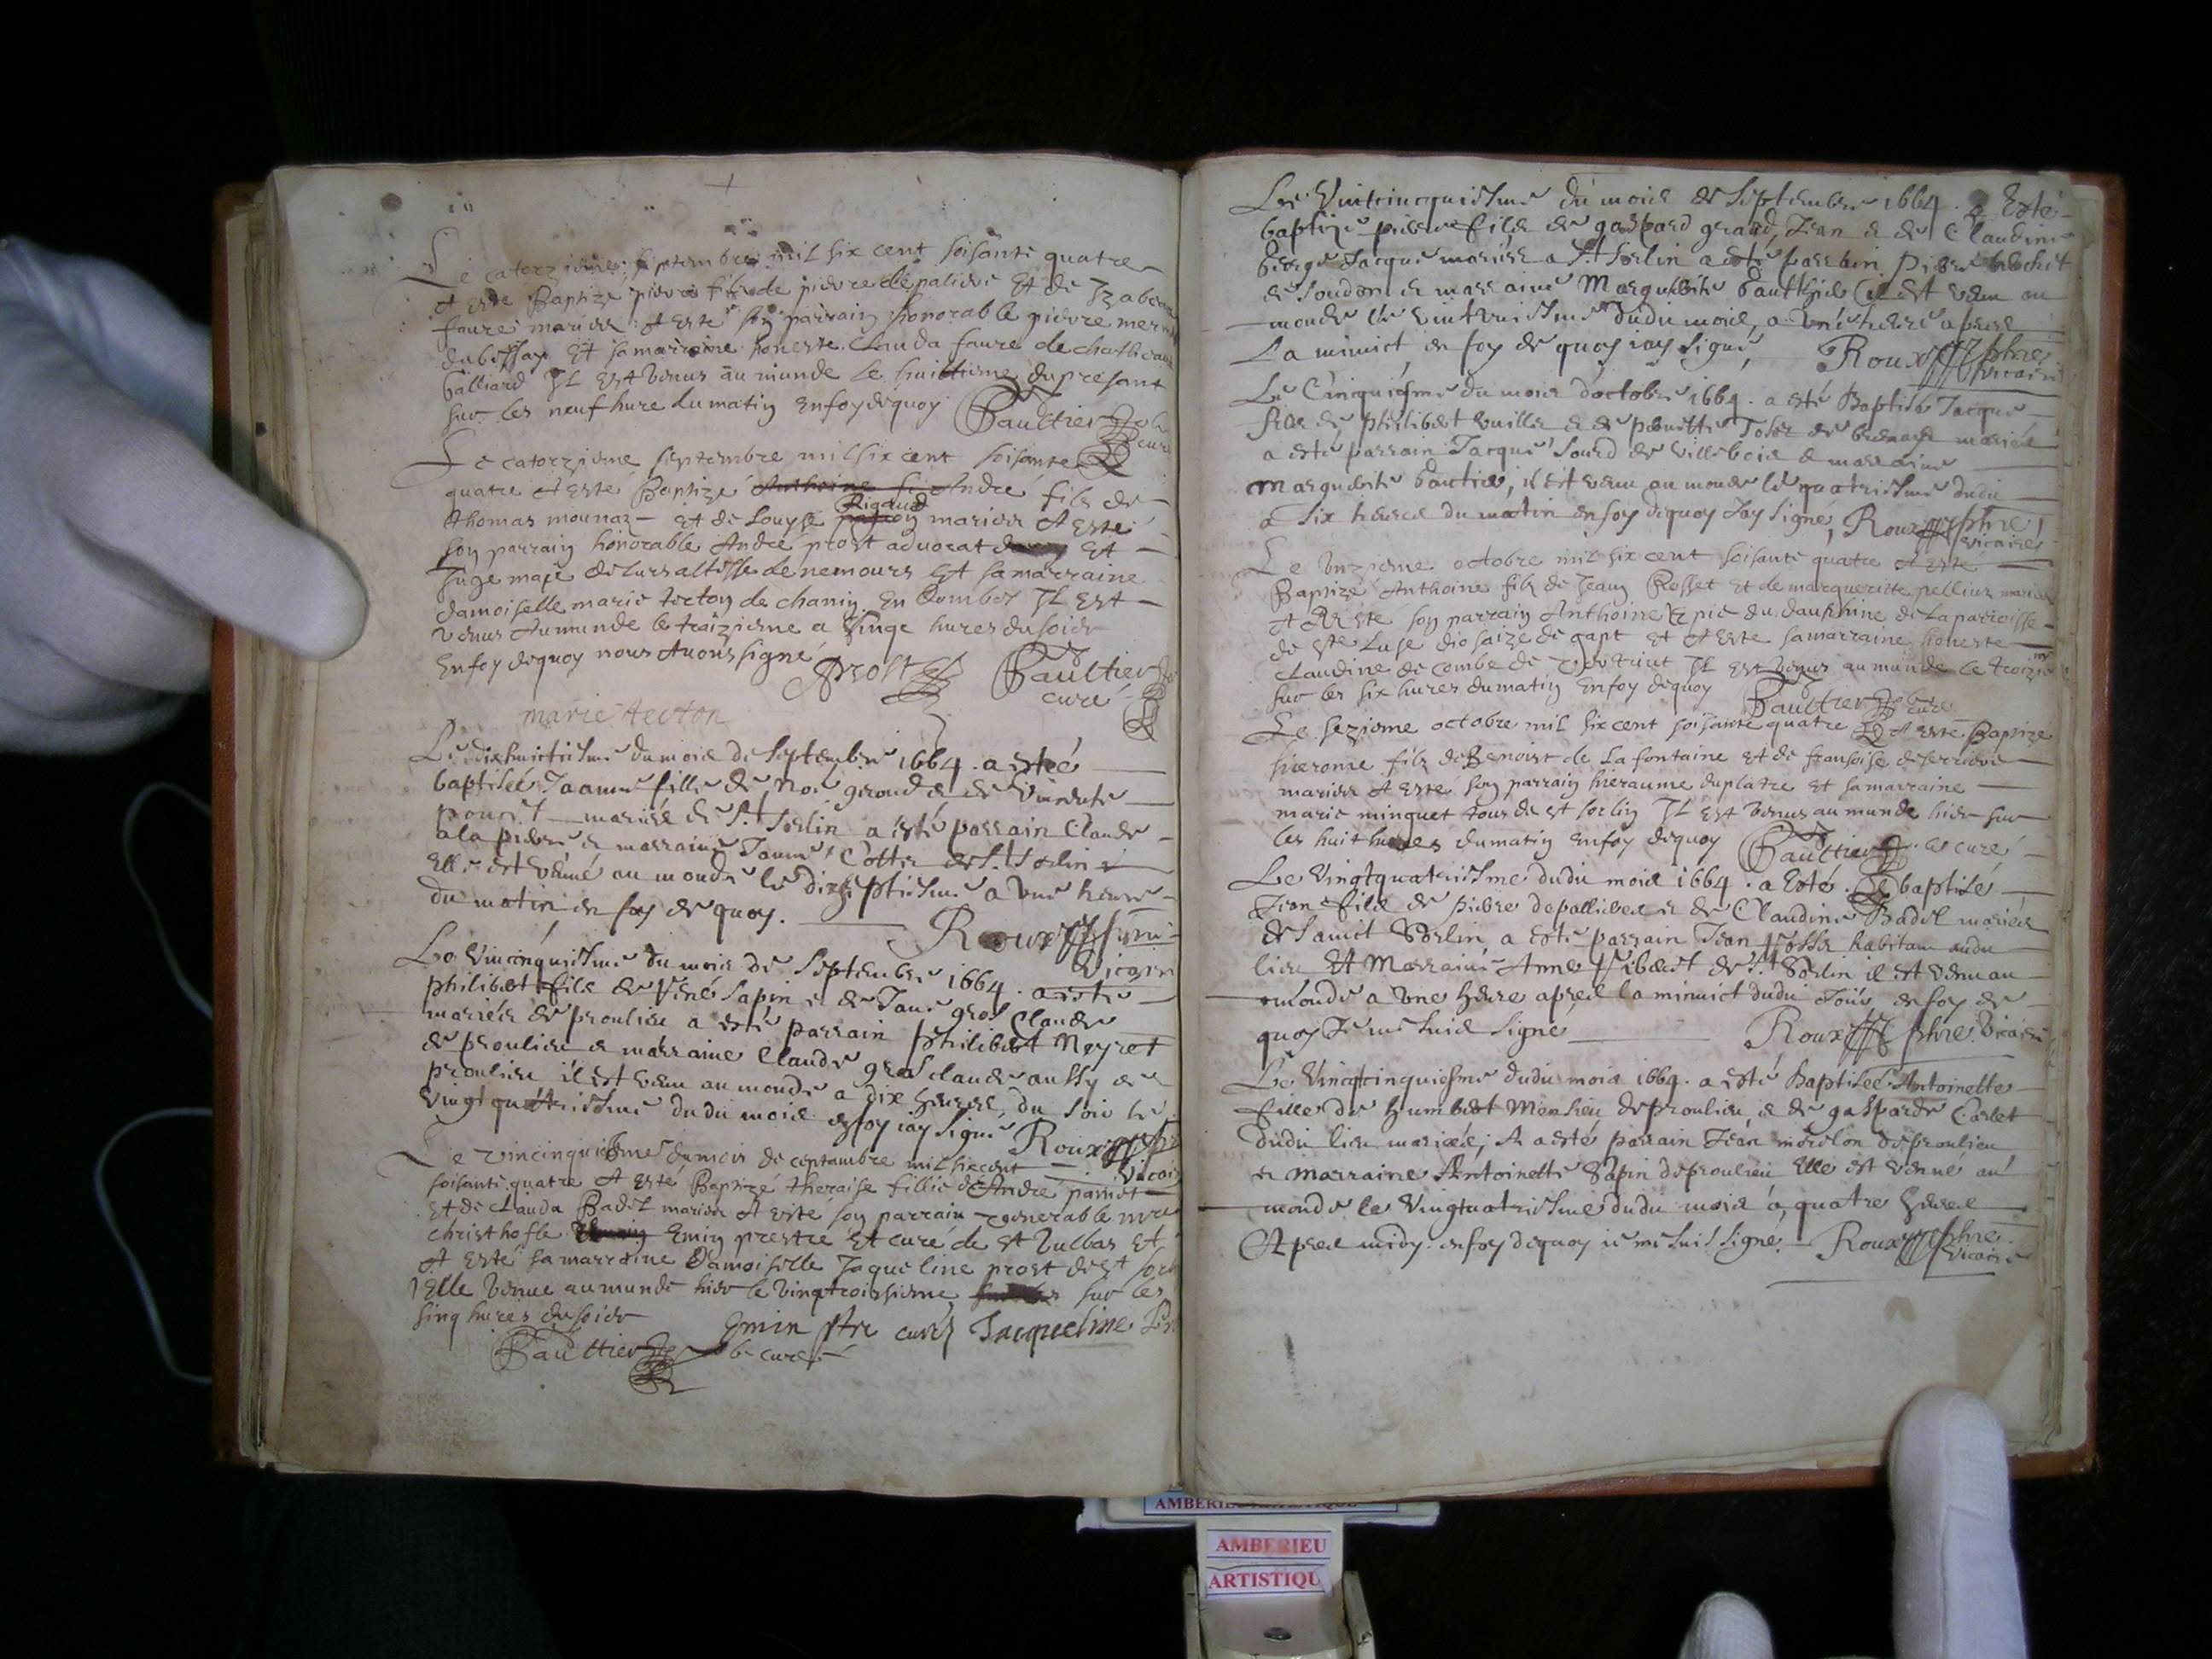 Le catorzieme septembre mil six cent soisante quatre
A este Baptizé pierre fils de pierre depaliere Et de Izabeau
faure mariez A este son parrain honorable pierre
dubessay Et sa marraine honeste Clauda faure de
Galliard IL Est venus au munde le huittieme du presant
sur les neuf hure du matin Enfoydequoy Baultier
curé
Le catorzieme septembre mil six cent soisante
quatre A este Baptizé André fils de
thomas mounaz Et de Louyse Rigaud mariez A Esté
son parrain honorable André prost advocat Et
Juge maje de leurs altesse de nemours Est sa marraine
damoiselle marie tecton de chanin En Dombes IL Est
venus Aumunde le traizieme a singe hures du soier
Enfoy dequoy nous Avons signé Prost Baultier
curé
marie tecton
Le dixhuictiesme du moies de Septembre 1664. a esté
baptisée Jaanne fille de Noe giroud et de
mariés de St Sorlin a esté parrain Claude
ala pierre et marraine Janne Cottin de St Sorlin
Elle est venue au monde le dixseptiesme a une heure
du matin en foy de quoy. Roux
Vicaire
Le Vincinquiesme du mois de Septembre 1664. a esté
philibert fils de René Sapin et de Jane gros Claude
mariés de proulieu a esté parrain philibert Neyret
de proulieu et marraine Claude gros claude aussy de
proulieu il est venu au monde a dix heures du soir le
vingt quatriesme dudu mois en foy iay signé Roux
Vicaire
Le vincinquiesme du mois de ceptambre mil six cent
soisante quatre A esté Baptizé theraise fillie de André
Et de Clauda Badel mariez A esté son parrain venerable
christhofle Emin prestre Et curé de st Vulbas Et
A Esté sa marraine Damoiselle Jaqueline prost de st
Elle venue aumunde hier le vingtroissieme sur les
sinq hures du soier
Emin ptre curé Jacqueline
Baultier curé
Le Vintcinquiesme du mois de Septembre 1664. a Esté
baptizé pierre fils de gaspard geraud, Jean et de Claudine
George Jacque mariés a St Sorlin a esté parrain Pierre
de Soudon et marraine Marguerite bauthier il est venu au
monde le vintroisiesme dudu mois, a une heure apres
La minuict, en foy de quoy iay signé, Roux ptre
vicaire
Le Cinquiesme du mois d'octobre 1664. a esté Baptisé Jacque
fils de philibert vuiller et de pernette mariés
a esté parrain Jacque Sourd de Villebois et marraine
Marguerite bautier, il est venu au monde le quatriesme dudu
a six heures du matin en foy dequoy Jay signé, Roux ptre
vicaire
Le Unzieme octobre mil six cent soisante quatre A este
Baptizé Anthoine fils de Jean Rosset Et de marguerite pellion mariez
A Esté son parrain Anthoine Epie du dauphine de La parroisse
de ste Luse diosaize de gapt Et A Este sa marraine honeste
Claudine de combe de vertrieu IL Est venus au munde le
sur les six hures du matin Enfoy dequoy Baultier curé
Le sezieme octobre mil six cent soisante quatre A este Baptizé
hierome fils de Benoist de La fontaine Et de fransoise deserriere
mariez A esté son parrain hieraume duplatre Et sa marraine
marie minguet tous de st sorlin IL Est venus au munde hier sur
les huit hures du matin Enfoy dequoy Baultier curé
Le Vingtquatriesme dudu mois 1664. a Esté baptisé
Jean fils de pierre depallieres et de Claudine Badel mariés
de Sainct Sorlin, a esté parrain Jean habitant audu
lieu Et Marraine Anne de St Sorlin il est venu au
monde a une heure apres la minuict dudu Jour, en foy de
quoy Je me suis signé Roux ptre Vicaire
Le Vingtcinquiesme dudu mois 1664. a esté Baptisée Antoinette
fille de humbert Monsieu de proulieu et de gasparde Carlet
dudu lieu mariés, Et a esté parrain Jean morelon de proulieu
et Marraine Antoinette Sapin de proulieu Elle est venue au
monde le Vingtuatriesme dudu mois a quatre heures
Apres midy. en foy dequoy ie me suis signé Roux ptre
Vicaire
AMBERIEU ARTISTIQUE
AMBERIEU
ARTISTIQU